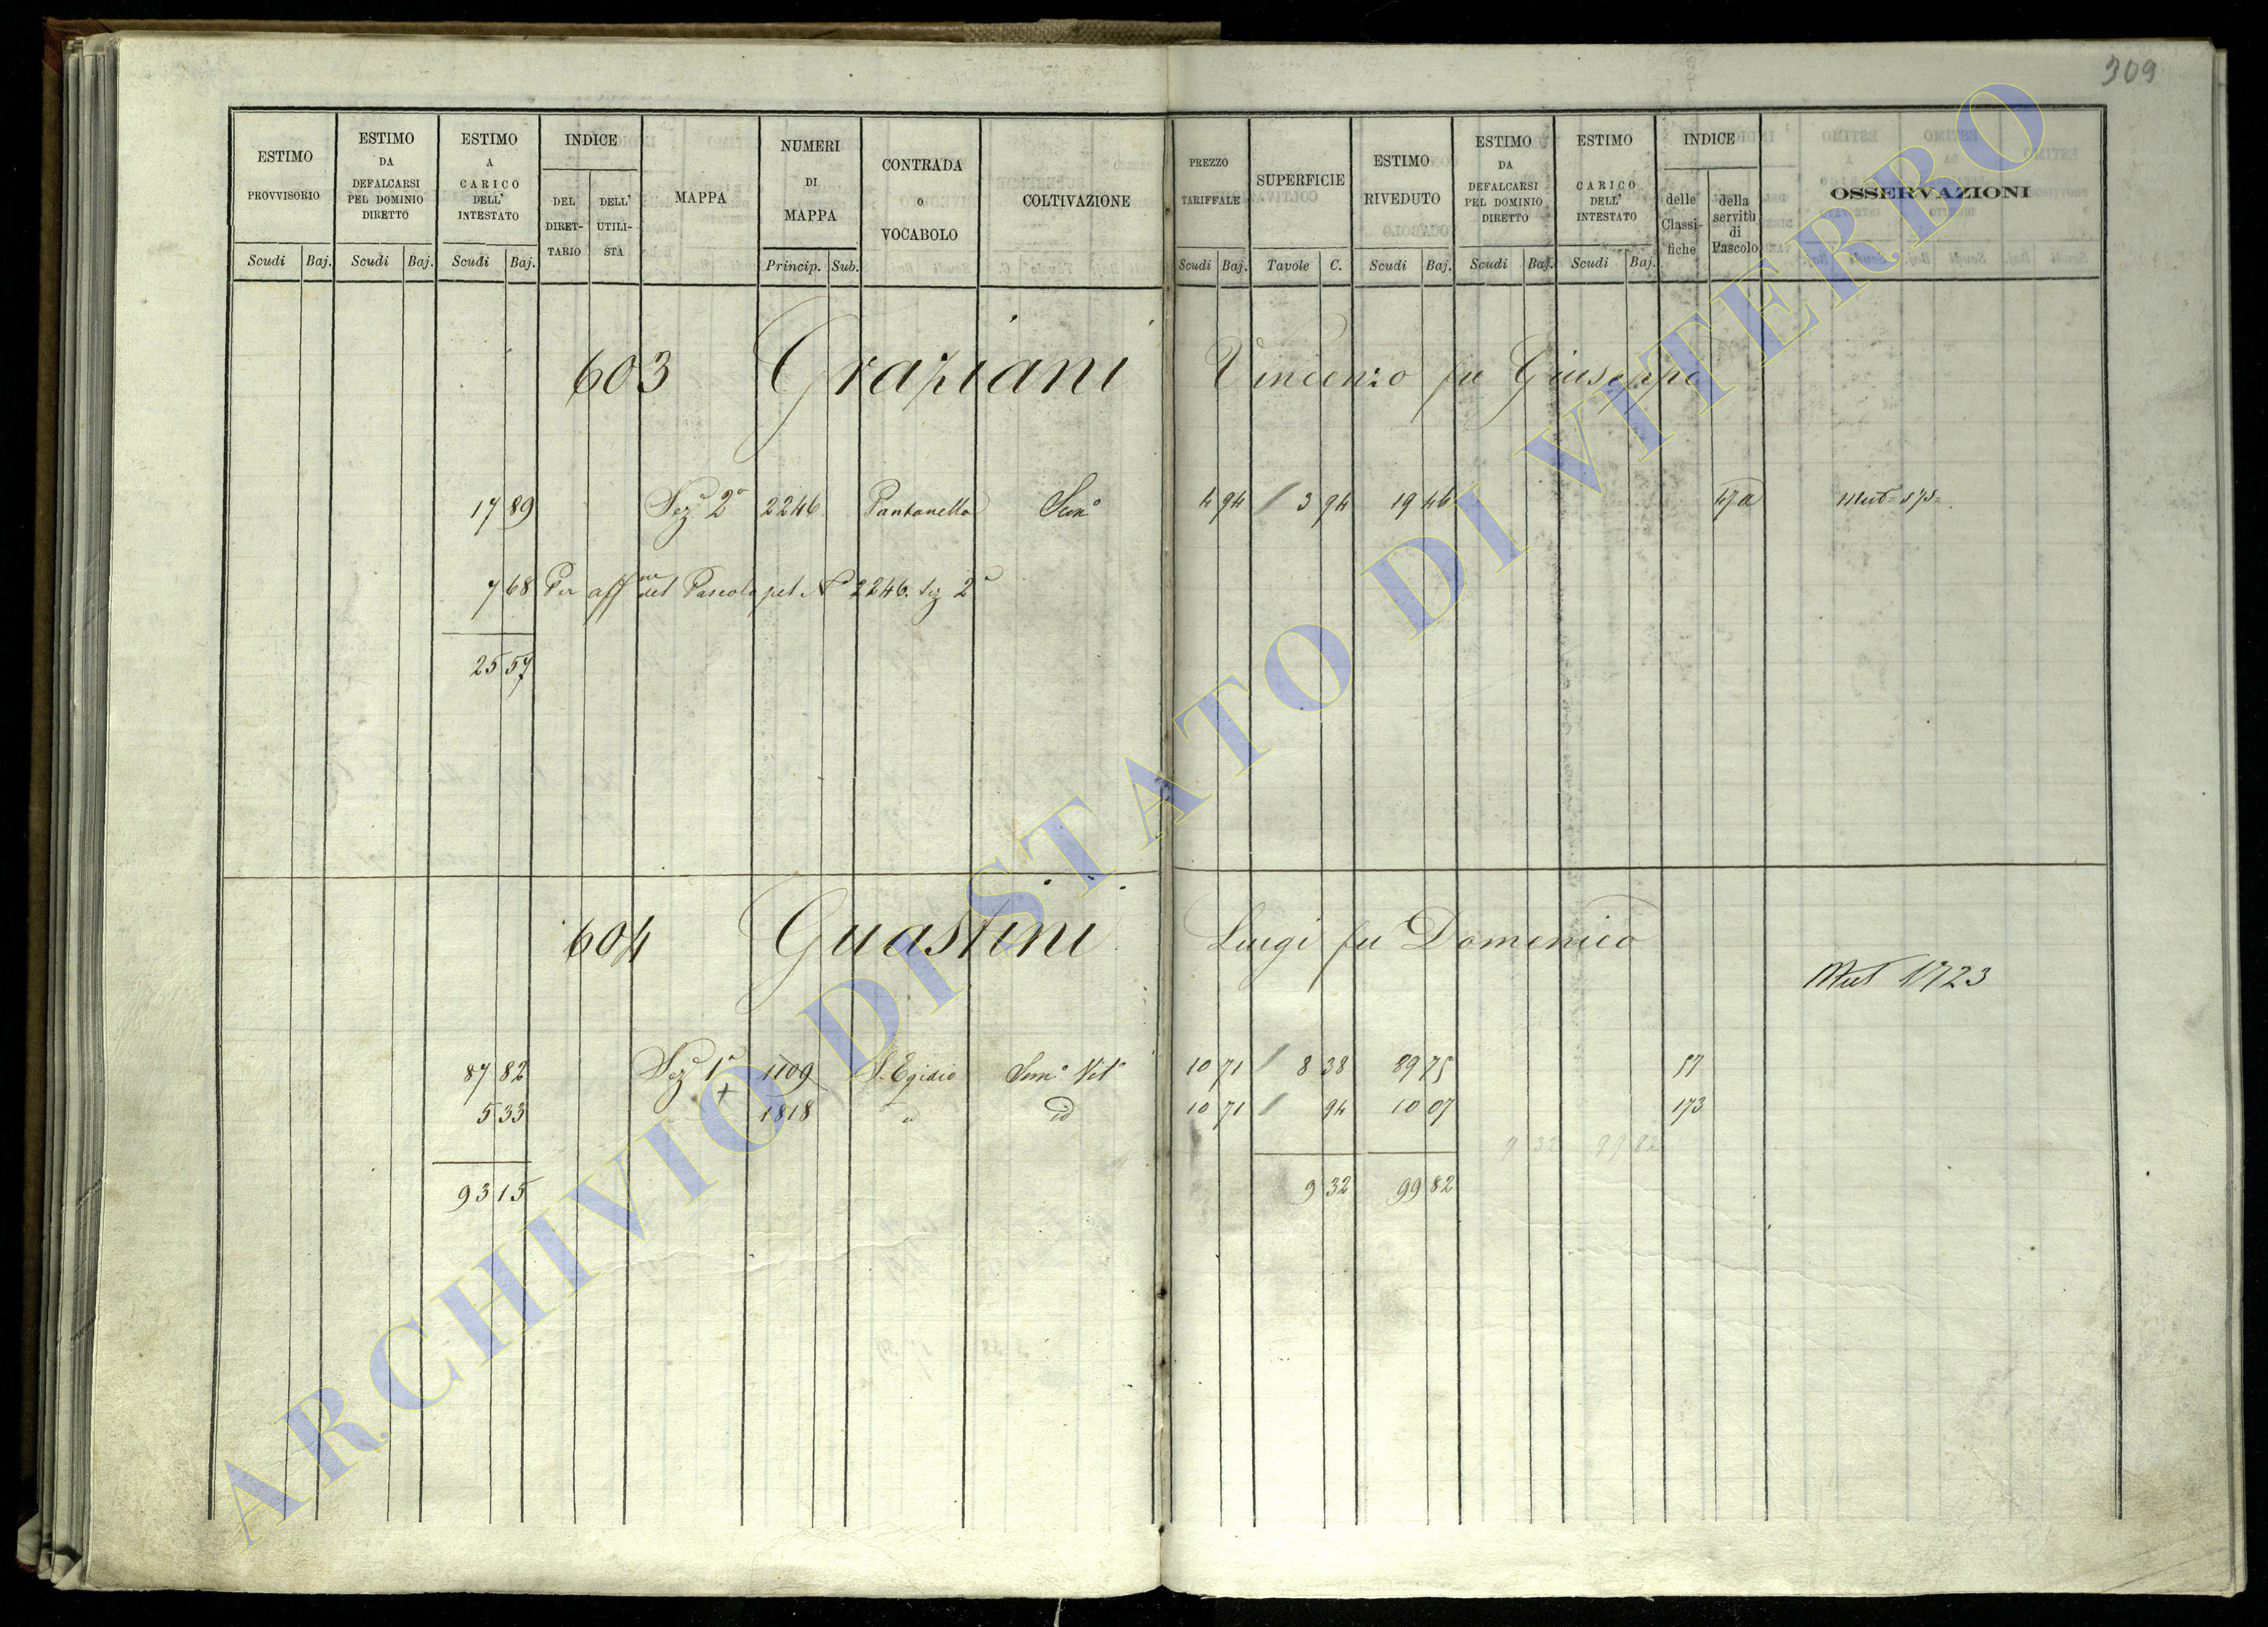 309
ESTIMO PROVVISORIO
ESTIMO DA DEFALCARSI PEL DOMINIO DIRETTO
ESTIMO A CARICO DELL' INTESTATO
INDICE
DEL DIRET-TARIO
DELL' UTILI-STA
MAPPA
NUMERI DI MAPPA
CONTRADA o VOCABOLO
COLTIVAZIONE
PREZZO TARIFFALE
SUPERFICIE
ESTIMO RIVEDUTO
ESTIMO DA DEFALCARSI PEL DOMINIO DIRETTO
ESTIMO CARICO DELL' INTESTATO
INDICE
delle Classi-fiche
della servitù di Pascolo
OSSERVAZIONI
Scudi Baj. Scudi Baj. Scudi Baj. Princip. Sub. Scudi Baj. Tavole C. Scudi Baj. Scudi Baj. Scudi Baj.
603 Graziani Vincenzo fu Giuseppe
17 89 Sez.e 2a 2246 Pantanella Sem.o 4 94 3 94 19 46 47a Mut.
7 68 Per aff.ne del Pascolo pel No 2246. Sez 2a
25 57
604 Guastini Luigi fu Domenico
Mut 1723
87 82 Sez.e 1a 1109 S. Egidio Sem.o Vit.o 10 71 8 38 89 75 57
5 33 + 1818 " id 10 71 94 10 07 173
9 32 99 82
93 15 9 32 99 82
ARCHIVIO DI STATO DI VITERBO